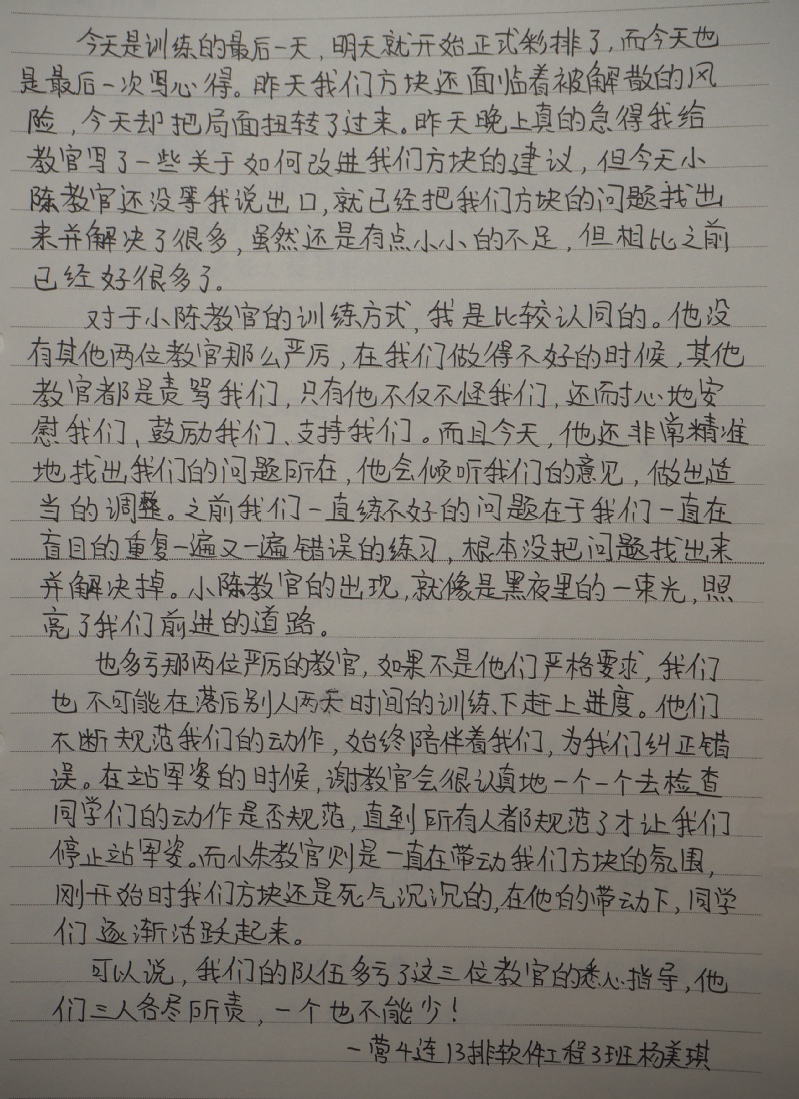 今天是训练的最后一天，明天就开始正式彩排了，而今天也
是最后一次写心得。昨天我们方块还面临着被解散的风
险，今天却把局面扭转了过来。昨天晚上真的急得我给
教官写了一些关于如何改进我们方块的建议，但今天小
陈教官还没等我说出口，就已经把我们方块的问题找出
来并解决了很多，虽然还是有点小小的不足，但相比之前
已经好很多了。
对于小陈教官的训练方式，我是比较认同的。他没
有其他两位教官那么严厉，在我们做得不好的时候，其他
教官都是责骂我们，只有他不仅不怪我们，还耐心地安
慰我们、鼓励我们、支持我们。而且今天，他还非常精准
地找出我们的问题所在，他会倾听我们的意见，做出适
当的调整。之前我们一直练不好的问题在于我们一直在
盲目的重复一遍又一遍错误的练习，根本没把问题找出来
并解决掉。小陈教官的出现，就像是黑夜里的一束光，照
亮了我们前进的道路。
也多亏那两位严厉的教官，如果不是他们严格要求，我们
也不可能在落后别人两天时间的训练下赶上进度。他们
不断规范我们的动作，始终陪伴着我们，为我们纠正错
误。在站军姿的时候，谢教官会很认真地一个一个去检查
同学们的动作是否规范，直到所有人都规范了才让我们
停止站军姿。而小朱教官则是一直在带动我们方块的氛围，
刚开始时我们方块还是死气沉沉的，在他的带动下，同学
们逐渐活跃起来。
可以说，我们的队伍多亏了这三位教官的悉心指导，他
们三人各尽所责，一个也不能少！
一营4连13排软件工程3班杨美琪